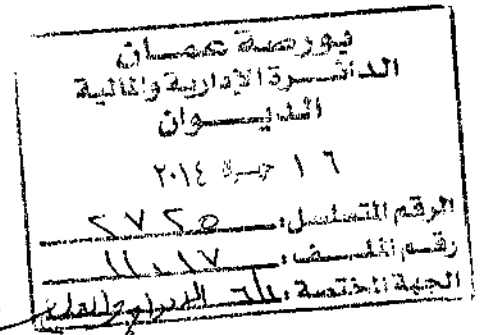 بورصة عمان
الدائرة الإدارية والمالية
الديوان
١٦ ٢٠١٤
الرقم المتسلسل: ٢٧٢٥
رقم الملف: ١١٠١٧
الجهة المختصة: